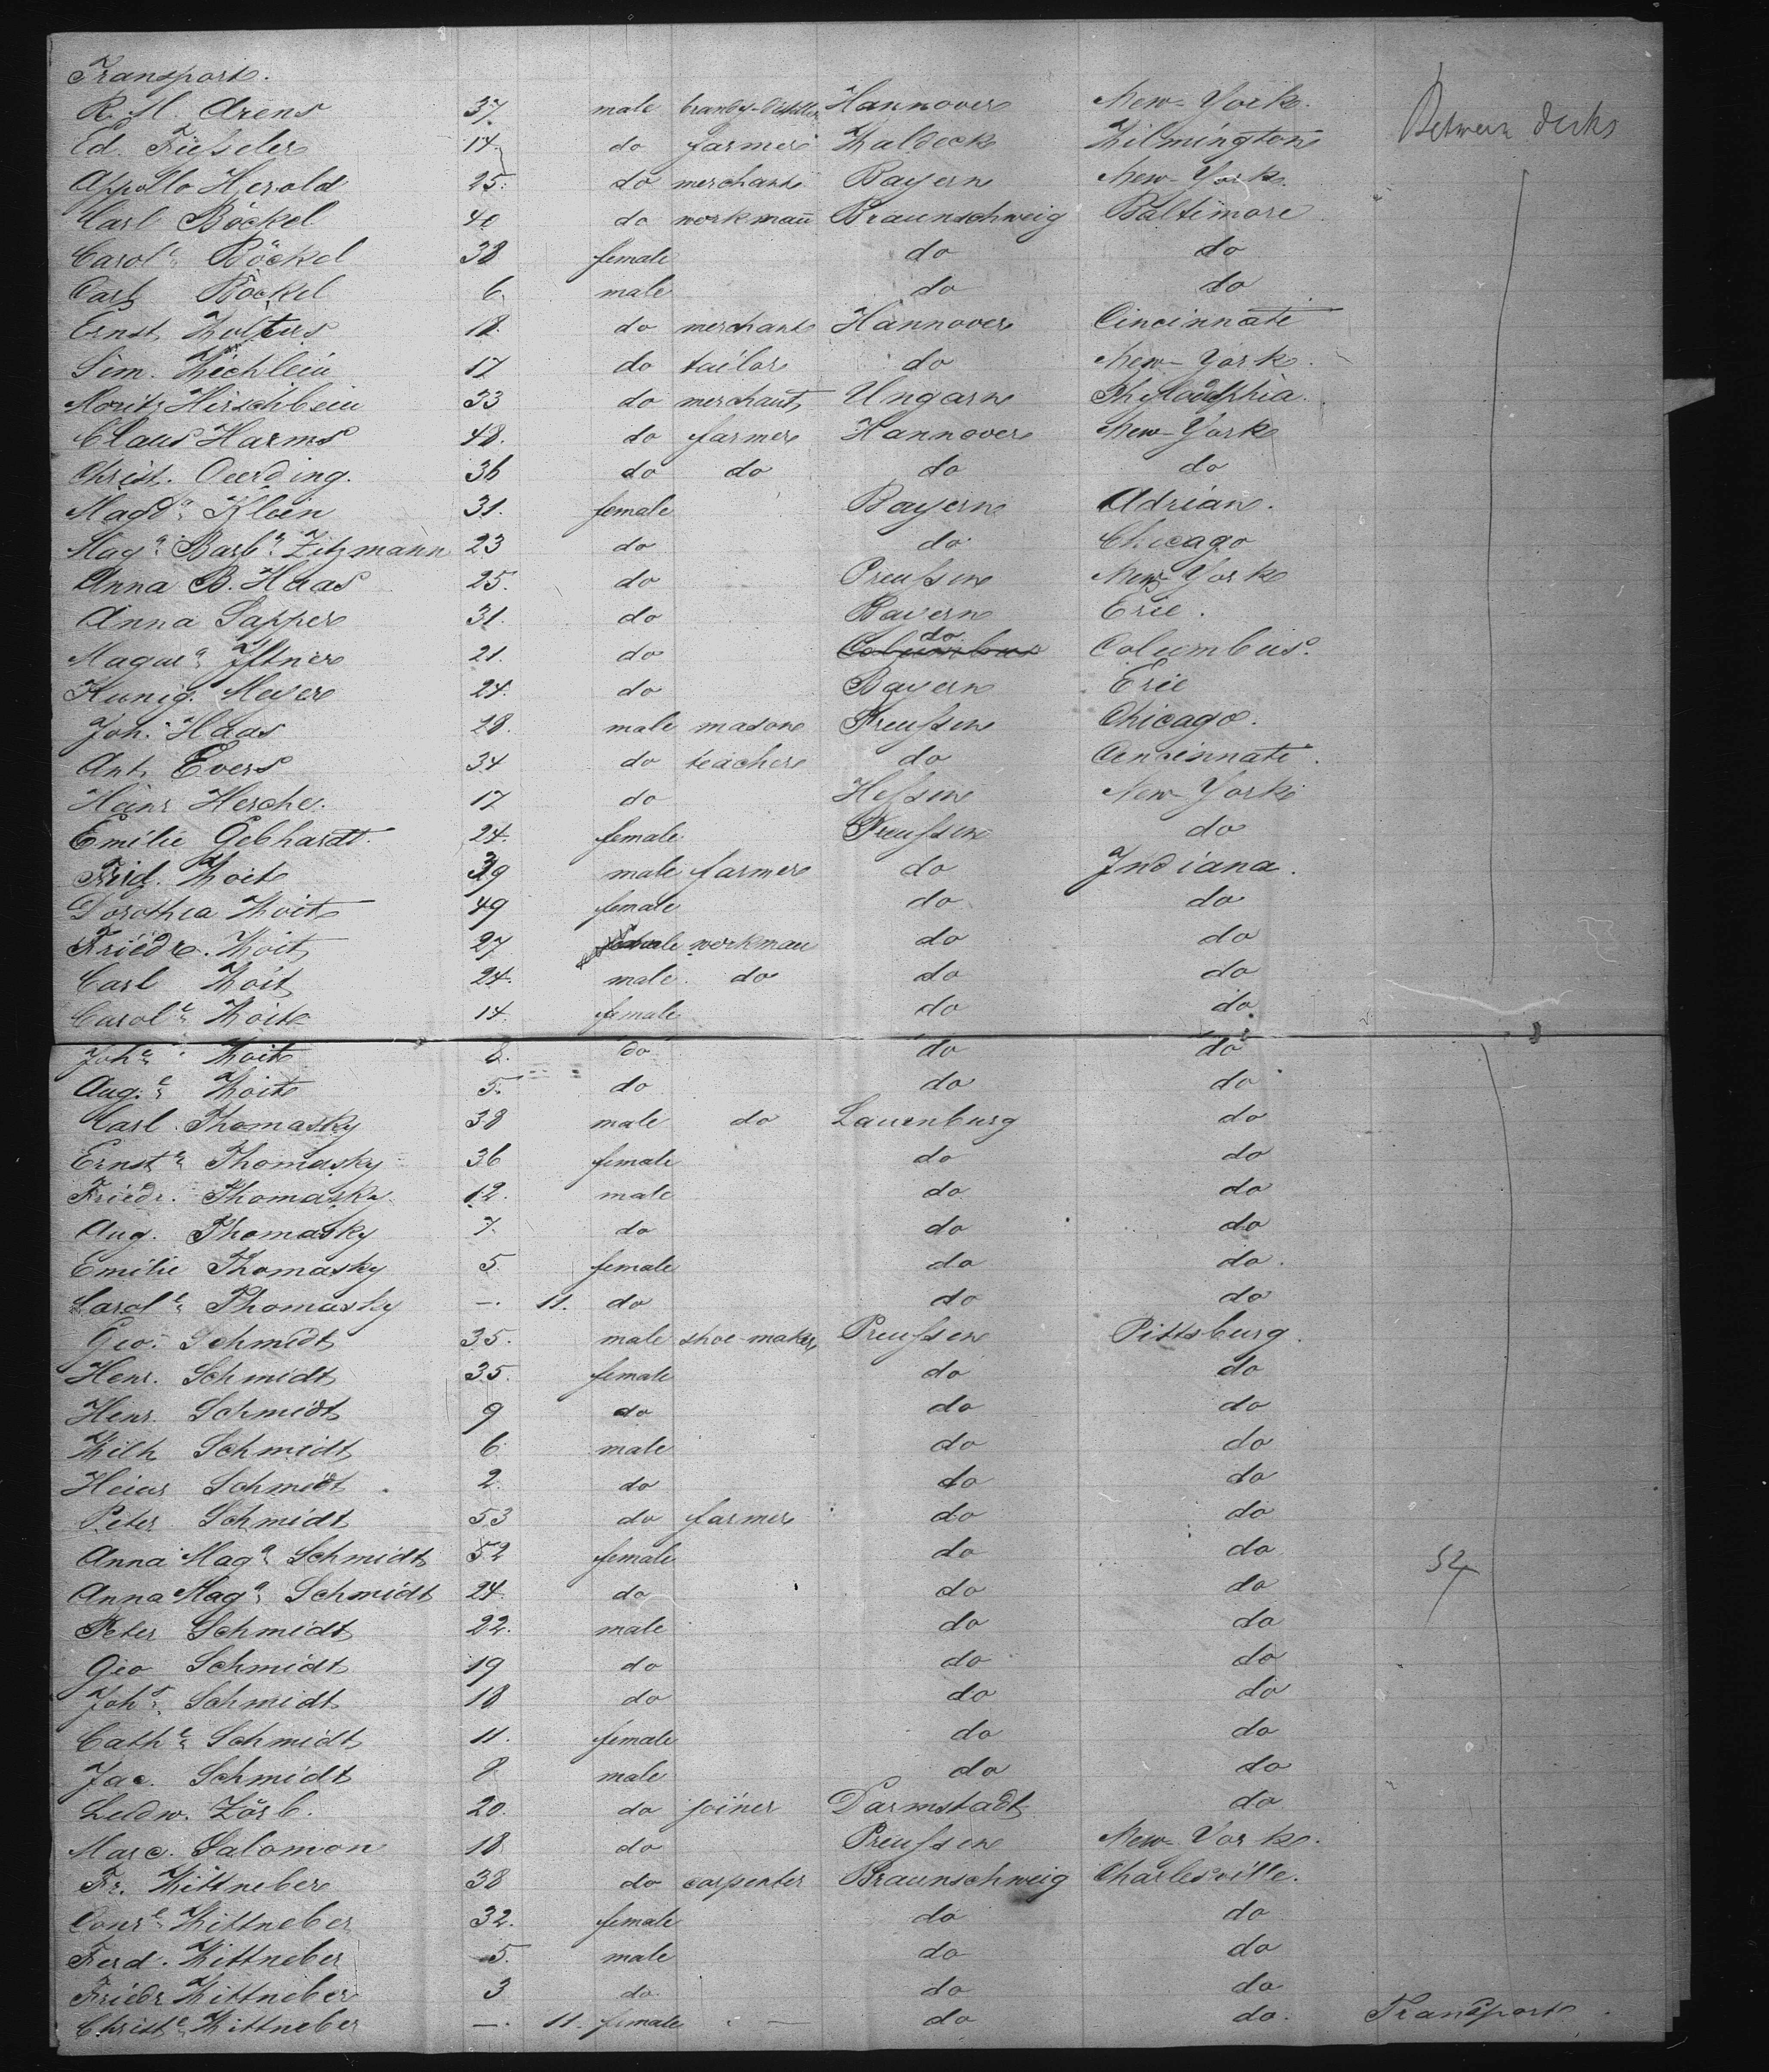 Transport.
R. H. Arens 37. male brandy-distiller Hannover New-York.
Between decks
Ed. Fieseler 14. do farmer Waldeck Wilmington
Apollo Herold 25. do merchant Bayern New-York.
Carl Böckel 40 do workmañ Braunschweig Baltimore
Carolᵉ Böckel 38 female do do
Carl Böckel 6. male do do
Ernst Wolters 18. do merchant Hannover Cincinnati
Sim. Wechlein 17 do tailor do New-York.
Moritz Hirschbein 33 do merchant Ungarn Phyladelphia.
Claus Harms 48. do farmer Hannover New-York
Christ. Oerding. 36 do do do do
Magdᵃ Klein 31. female Bayern Adrian.
Magᵃ Barbᵃ Zitzmann 23 do do Chicago
Anna B. Haas 25. do Preußen New-York
Anna Sapper 31. do Bayern Erie.
Magarᵃ Iftner 21. do do Columbus.
Kunig. Meyer 24. do Bayern Erie
Joh. Haas 28. male mason Preußen Chicago.
Ant. Evers 34 do teacher do Cencinnati.
Heinr Hesche. 17 do Heßen New-York
Emilie Gebhardt. 24. female Preußen do
Fried. Woit 39 male farmer do Indiana.
Dorothea Woit 49 female do do
Friedr. Woit 27 male workman do do
Carl Woit 24. male. do do do
Carolᵉ Woit 14. female do do
Johᵉ Woit 8. do do do
Aug.ᵉ Woit 5. do do do
Carl Thomasky 38 male do Lauenburg do
Ernstᵉ Thomasky 36 female do do
Friedr. Thomasky 12. male do do
Aug. Thomasky 7. do do do
Emilie Thomasky 5 female do do.
Carolᵉ Thomasky —. 11. do do do
Geo. Schmidt 35. male shoe-maker Preußen Pittsburg.
Henr. Schmidt 35. female do do
Henr. Schmidt 9 do do do
Wilh Schmidt 6. male do do
Heinr Schmidt 2. do do do
Peter Schmidt 53 do farmer do do
Anna Magᵃ Schmidt 52 female do do
54
Anna Magᵃ Schmidt 24. do do do
Peter Schmidt 22. male do do
Geo Schmidt 19 do do do
Johˢ Schmidt 18 do do do
Cathᵉ Schmidt 11. female do do
Jac. Schmidt 8 male do do
Ludw. Zörb. 20. do joiner Darmstadt do
Marc. Salomon 18 do Preußen New-York.
Fr. Wittneber 38 do carpenter Braunschweig Charlesville.
Conrᵉ Wittneber 32. female do do
Ferd. Wittneber 5. male do do
Friedr Wittneber 3 do do do
Christᵉ Wittneber —. 11. female do do. Transport.